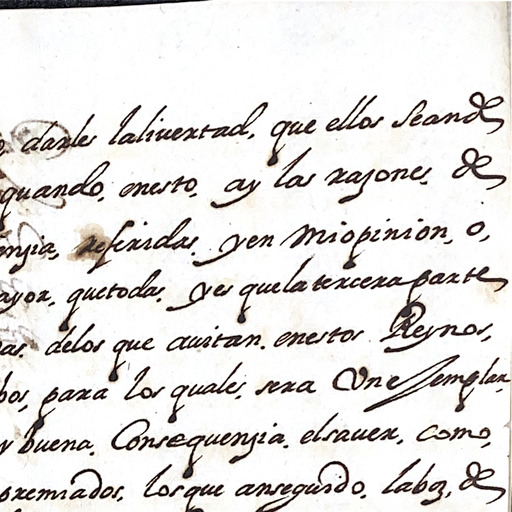 darles laliuertad, que ellos Seande
quando, enesto, ay las razones, de
referidas, yen Miopinion, o,
ayor, quetodas, yes quelatercera parte
as, delos que auitan, enestos Reynos,
bos, para los quales, sera Vnexemplar,
y buena, Consequenzia, elsauer, como,
premiados, losque anseguido, laboz, de